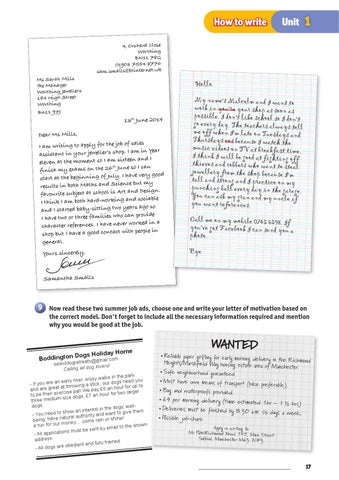 How to write Unit 1
4, Orchard Close
Worthing
BN11 7RC
sam.smalls@btinternet.uk
Ms Sarah Mills
The Manager
Worthing Jewellers
184 High Street
Worthing
BN11 9JY
13th June 2014
Dear Ms Mills,
I am writing to apply for the job of sales
assistant in your jeweller's shop. I am in Year
Eleven at the moment so I am sixteen and I
finish my exams on the 26th June so I can
start at the beginning of July. I have very good
results in both Maths and Science but my
favourite subject at school is Art and Design.
I think I am both hard-working and sociable
and I started baby-sitting two years ago so
I have two or three families who can provide
character references. I have never worked in a
shop but I have a good contact with people in
general.
Yours sincerely,
Samantha Smalls
Hello,
My name's Malcolm and I want to
work in your shop as soon as
possible. I don't like school so I don't
go every day. The teachers always tell
me off when I'm late on Tuesdays and
Thursdays because I watch the
music videos on TV at breakfast time.
I think I will be good at fighting off
thieves and robbers who want to steal
jewellery from the shop because I'm
tall and strong and I practice on my
punching ball every day in the garage.
You can ask my gran and my uncle if
you want references.
Call me on my mobile
you've got Facebook I can send you a
photo.
Bye
9 Now read these two summer job ads, choose one and write your letter of motivation based on
the correct model. Don't forget to include all the necessary information required and mention
why you would be good at the job.
Boddington Dogs Holiday Home
Calling all dog lovers!
- If you are an early riser, enjoy walks in the park
and are great at throwing a stick, our dogs need you
to be their exercise pal! We pay £5 an hour for up to
three medium-size dogs, £7 an hour for two larger
dogs.
- You need to show an interest in the dogs' well-
being, have natural authority and want to give them
a run for our money... come rain or shine!
- All applications must be sent by email to the shown
address.
- All dogs are obedient and fully trained.
WANTED
• Reliable paper girl/boy for early morning delivery in the Richmond
Heights/Marshfield Way housing estate area of Manchester.
• Safe neighbourhood guaranteed.
• Must have own means of transport (bike preferable).
• Bag and waterproofs provided.
• £4 per morning delivery (time estimated 1hr – 1 ½ hrs)
• Deliveries must be finished by 8.30 a.m. six days a week.
• Possible job-share.
Apply in writing to:
17